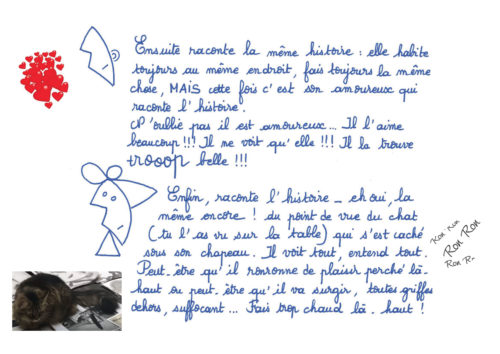 Ensuite raconte la même histoire : elle habite
toujours au même endroit, fais toujours la même
chose, MAIS cette fois c'est son amoureux qui
raconte l'histoire.
N'oublie pas il est amoureux... Il l'aime
beaucoup !!! Il ne voit qu'elle !!! Il la trouve
trooop belle !!!
Enfin, raconte l'histoire _ eh oui, la
même encore ! du point de vue du chat
(tu l'as vu sur la table) qui s'est caché
sous son chapeau. Il voit tout, entend tout.
Peut-être qu'il ronronne de plaisir perché là-
haut ou peut-être qu'il va surgir, toutes griffes
dehors, suffocant... Fais trop chaud là-haut !
Ron Ron
Ron Ron
Ron R..